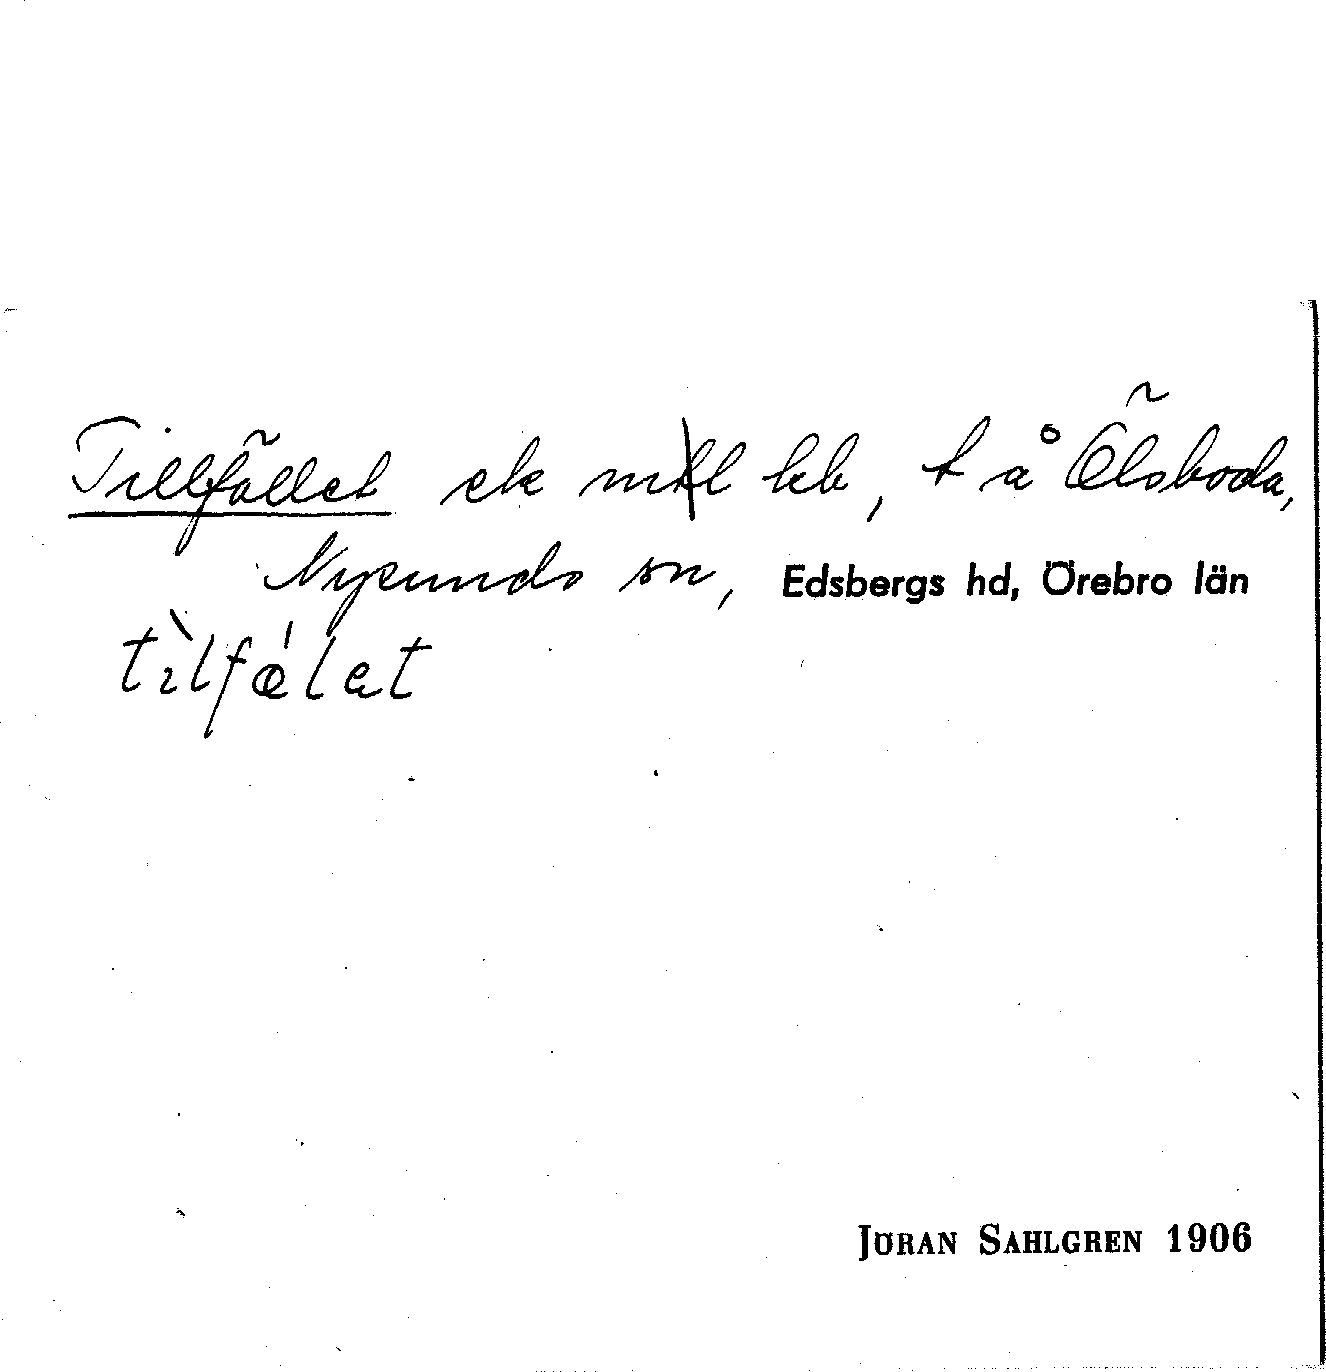 Tillfället ek mtl kb, t å Ölsboda,
Nysunds sn, Edsbergs hd, Örebro län
tìlfǿlet
JÖRAN SAHLGREN 1906